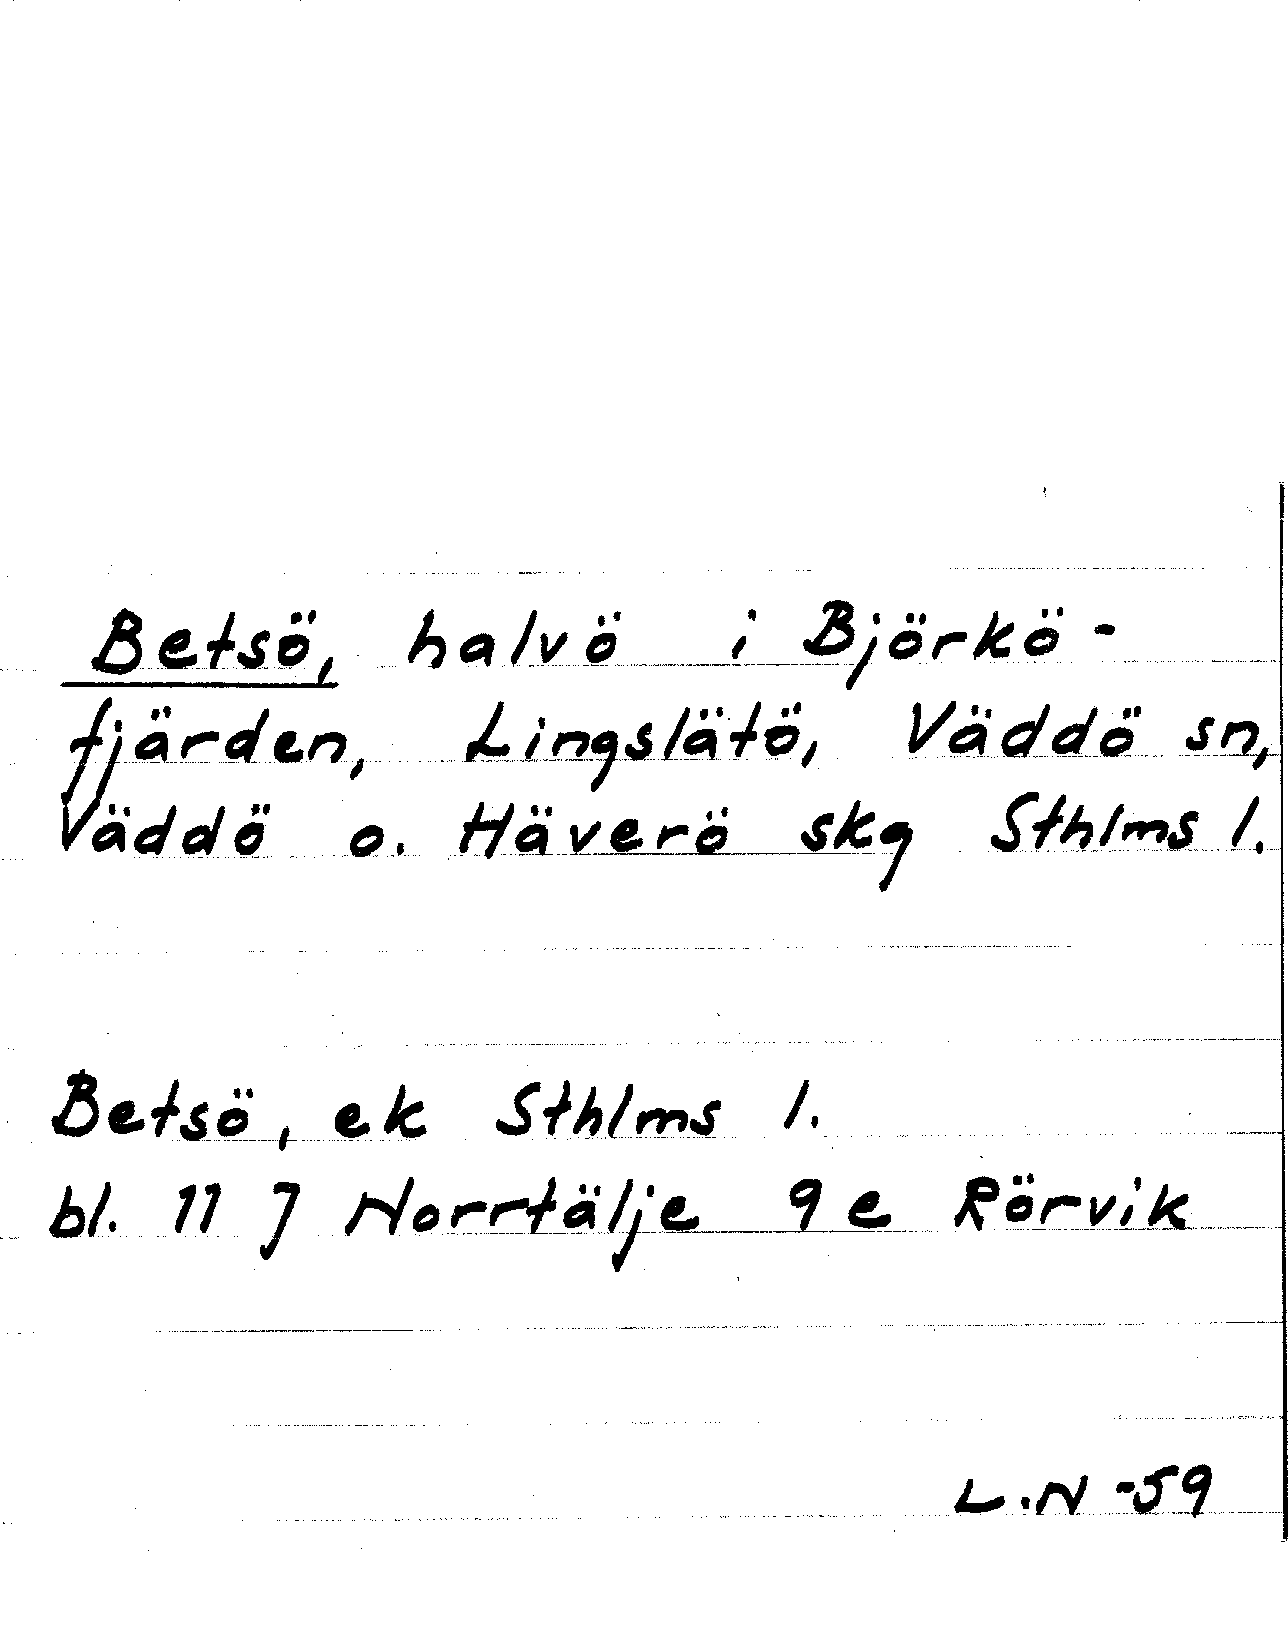 Betsö, halvö i Björkö-
fjärden, Lingslätö, Väddö sn,
Väddö o. Häverö skg Sthlms l.
Betsö, ek Sthlms l.
bl. 11 J Norrtälje 9 e Rörvik
L.N -59